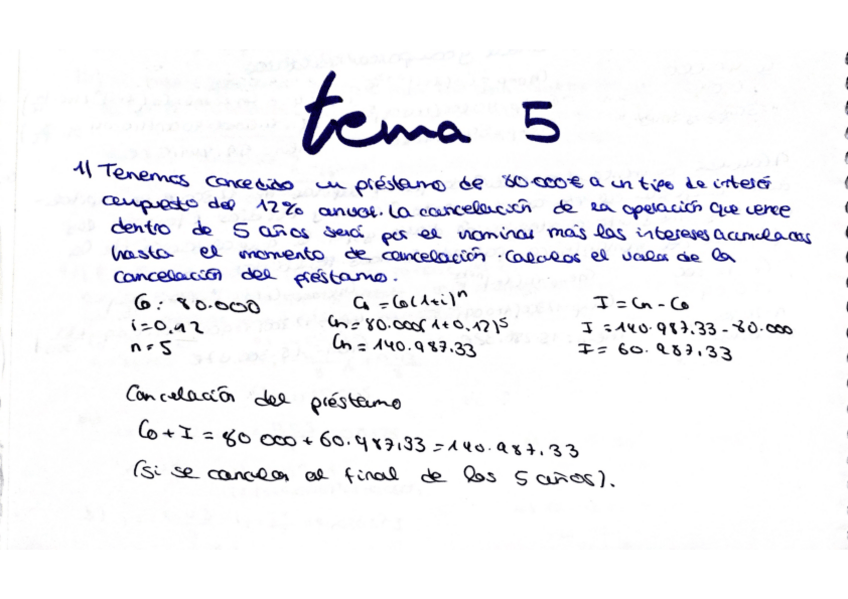 tema 5
1) Tenemos concedido un préstamo de 80.000€ a un tipo de interés
compuesto del 12% anual. La cancelación de la operación que vence
dentro de 5 años será por el nominal más los intereses acumulados
hasta el momento de cancelación. Calculos el valor de la
cancelación del préstamo.
Co: 80.000 Cn = Co(1+i)^n I = Cn - Co
i=0,12 Cn=80.000(1+0,12)^5 I=140.987,33-80.000
n=5 Cn=140.987,33 I= 60.987,33
Cancelación del préstamo
Co+I = 80 000 + 60.987,33 = 140.987,33
(si se cancela al final de los 5 años).